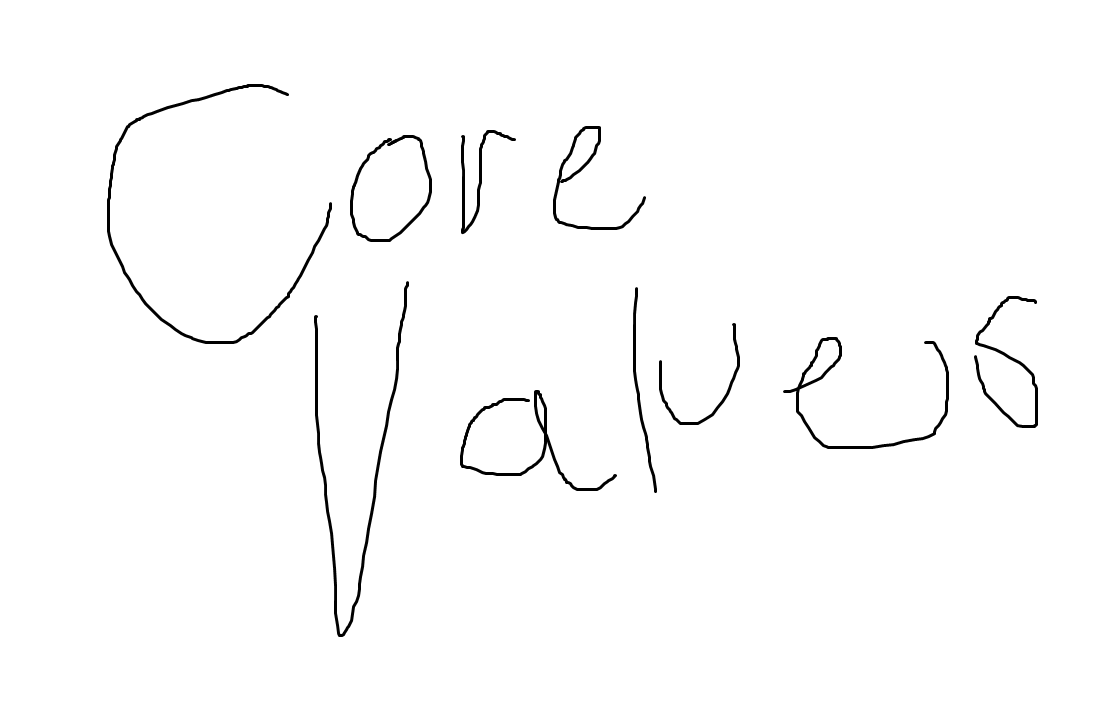 Core
Values